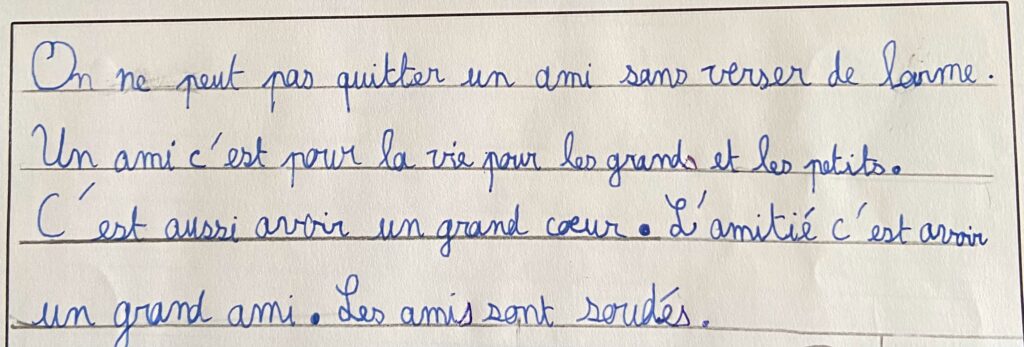 On ne peut pas quitter un ami sans verser de larme.
Un ami c'est pour la vie pour les grands et les petits.
C'est aussi avoir un grand coeur. L'amitié c'est avoir
un grand ami. Les amis sont soudés.